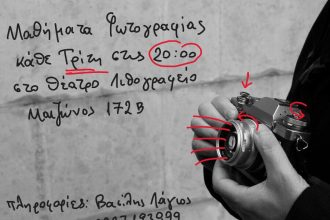 Μαθήματα Φωτογραφίας
κάθε Τρίτη στις 20:00
στο Θέατρο Λιθογραφείο
Μαιζώνος 172Β
Πληροφορίες: Βασίλης Λάγιος